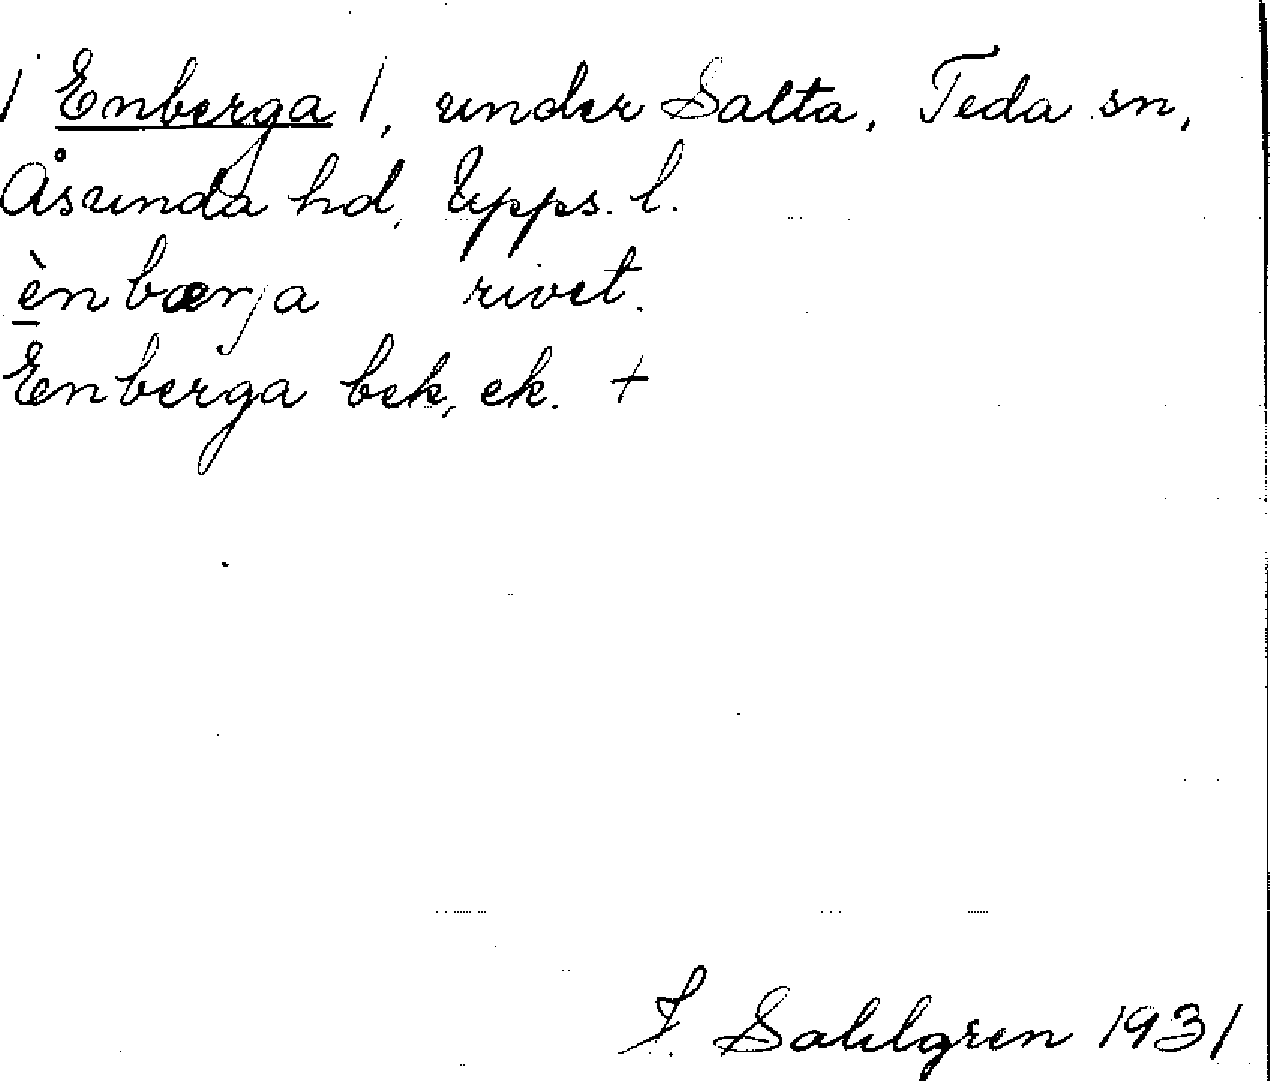 / Enberga /, under Salta, Teda sn,
Åsunda hd, Upps. l.
ènbærja rivet.
Enberga bek, ek. +
J. Sahlgren 1931